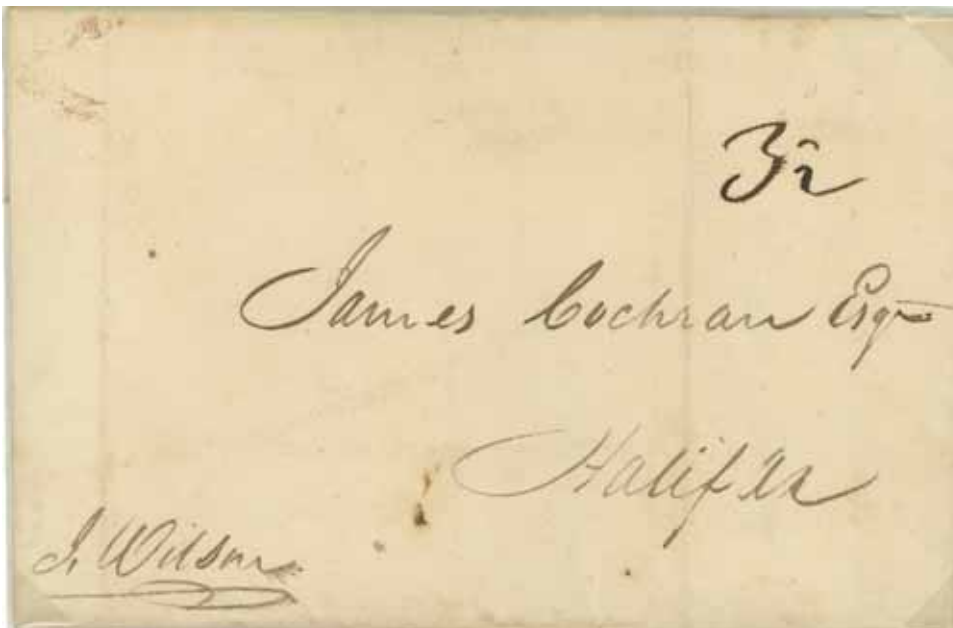 32
James Cochran Esqr
Halifax
J. Wilson